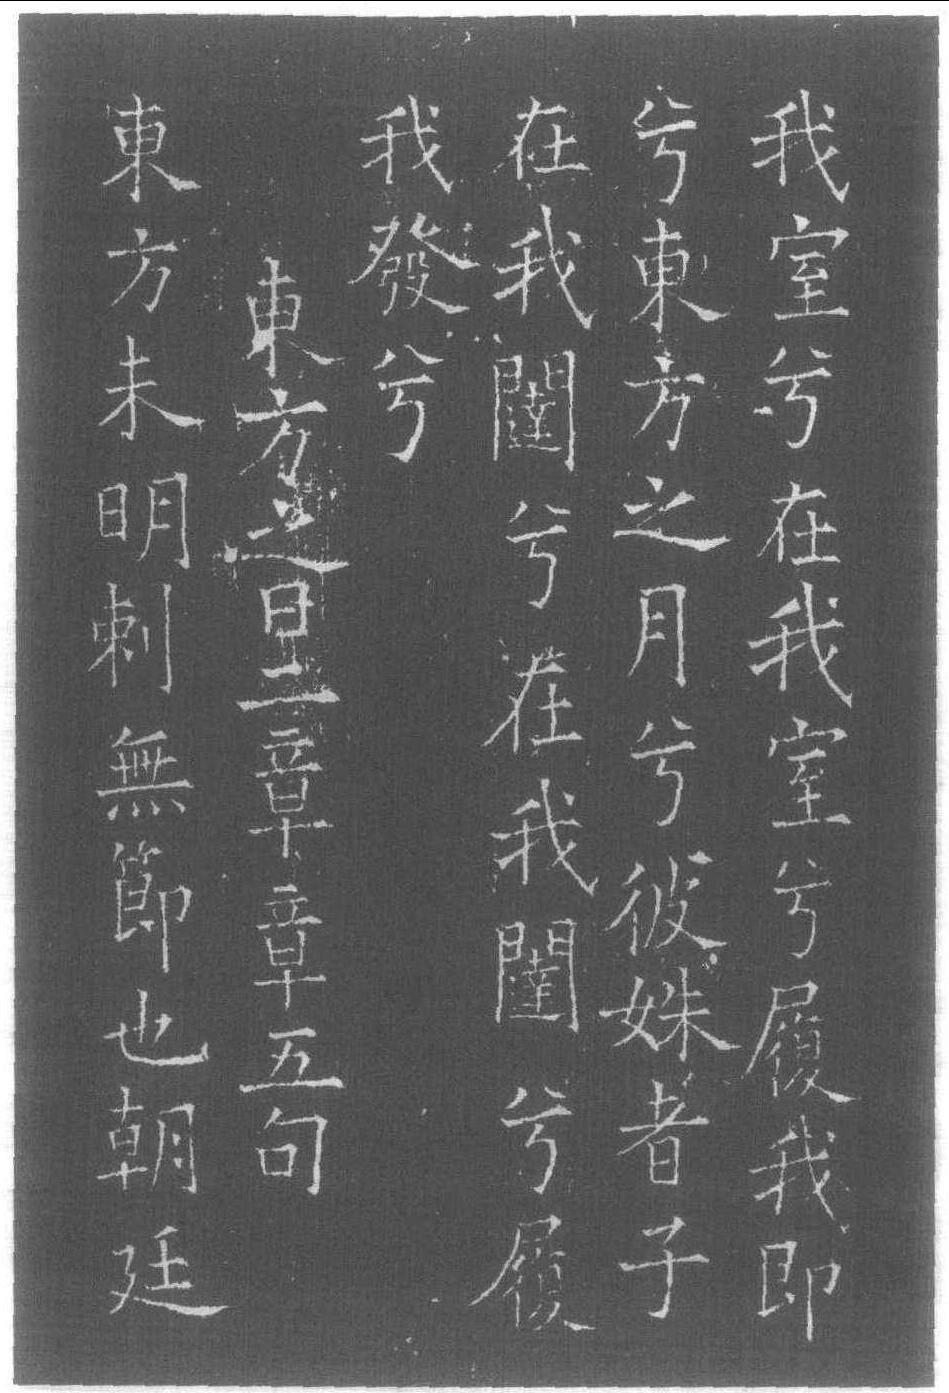 我室兮在我室兮履我即
兮東方之月兮彼姝者子
在我闥兮在我闥兮履
我發兮
東方之日二章章五句
東方未明刺無節也朝廷